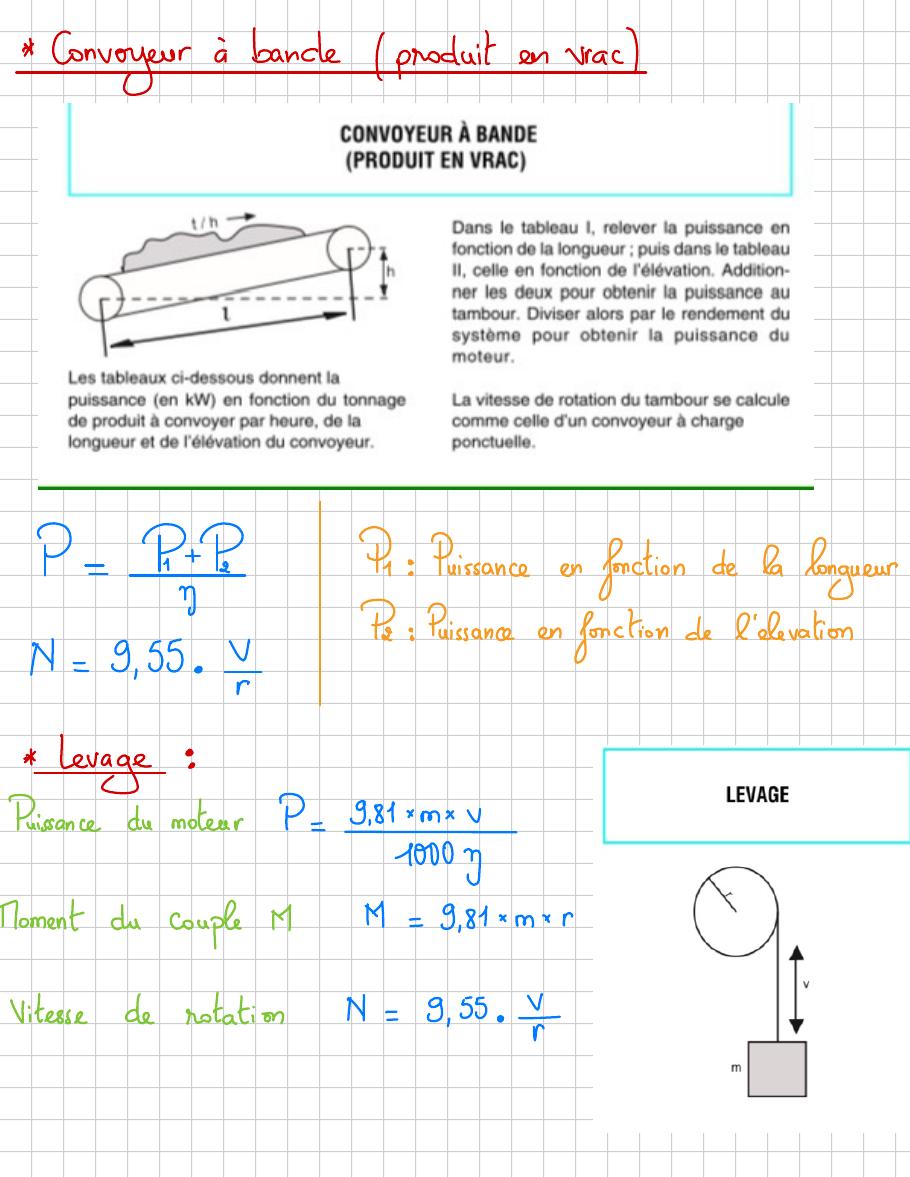 * Convoyeur à bande (produit en vrac)
CONVOYEUR À BANDE
(PRODUIT EN VRAC)
t/h
h
l
Les tableaux ci-dessous donnent la
puissance (en kW) en fonction du tonnage
de produit à convoyer par heure, de la
longueur et de l'élévation du convoyeur.
Dans le tableau I, relever la puissance en
fonction de la longueur ; puis dans le tableau
II, celle en fonction de l'élévation. Addition-
ner les deux pour obtenir la puissance au
tambour. Diviser alors par le rendement du
système pour obtenir la puissance du
moteur.
La vitesse de rotation du tambour se calcule
comme celle d'un convoyeur à charge
ponctuelle.
P = (P₁ + P₂) / η
N = 9,55 . v/r
P₁ : Puissance en fonction de la longueur
P₂ : Puissance en fonction de l'elevation
* Levage :
Puissance du moteur P = (9,81 × m × v) / (1000 η)
Moment du couple M M = 9,81 × m × r
Vitesse de rotation N = 9,55 . v/r
LEVAGE
r
v
m